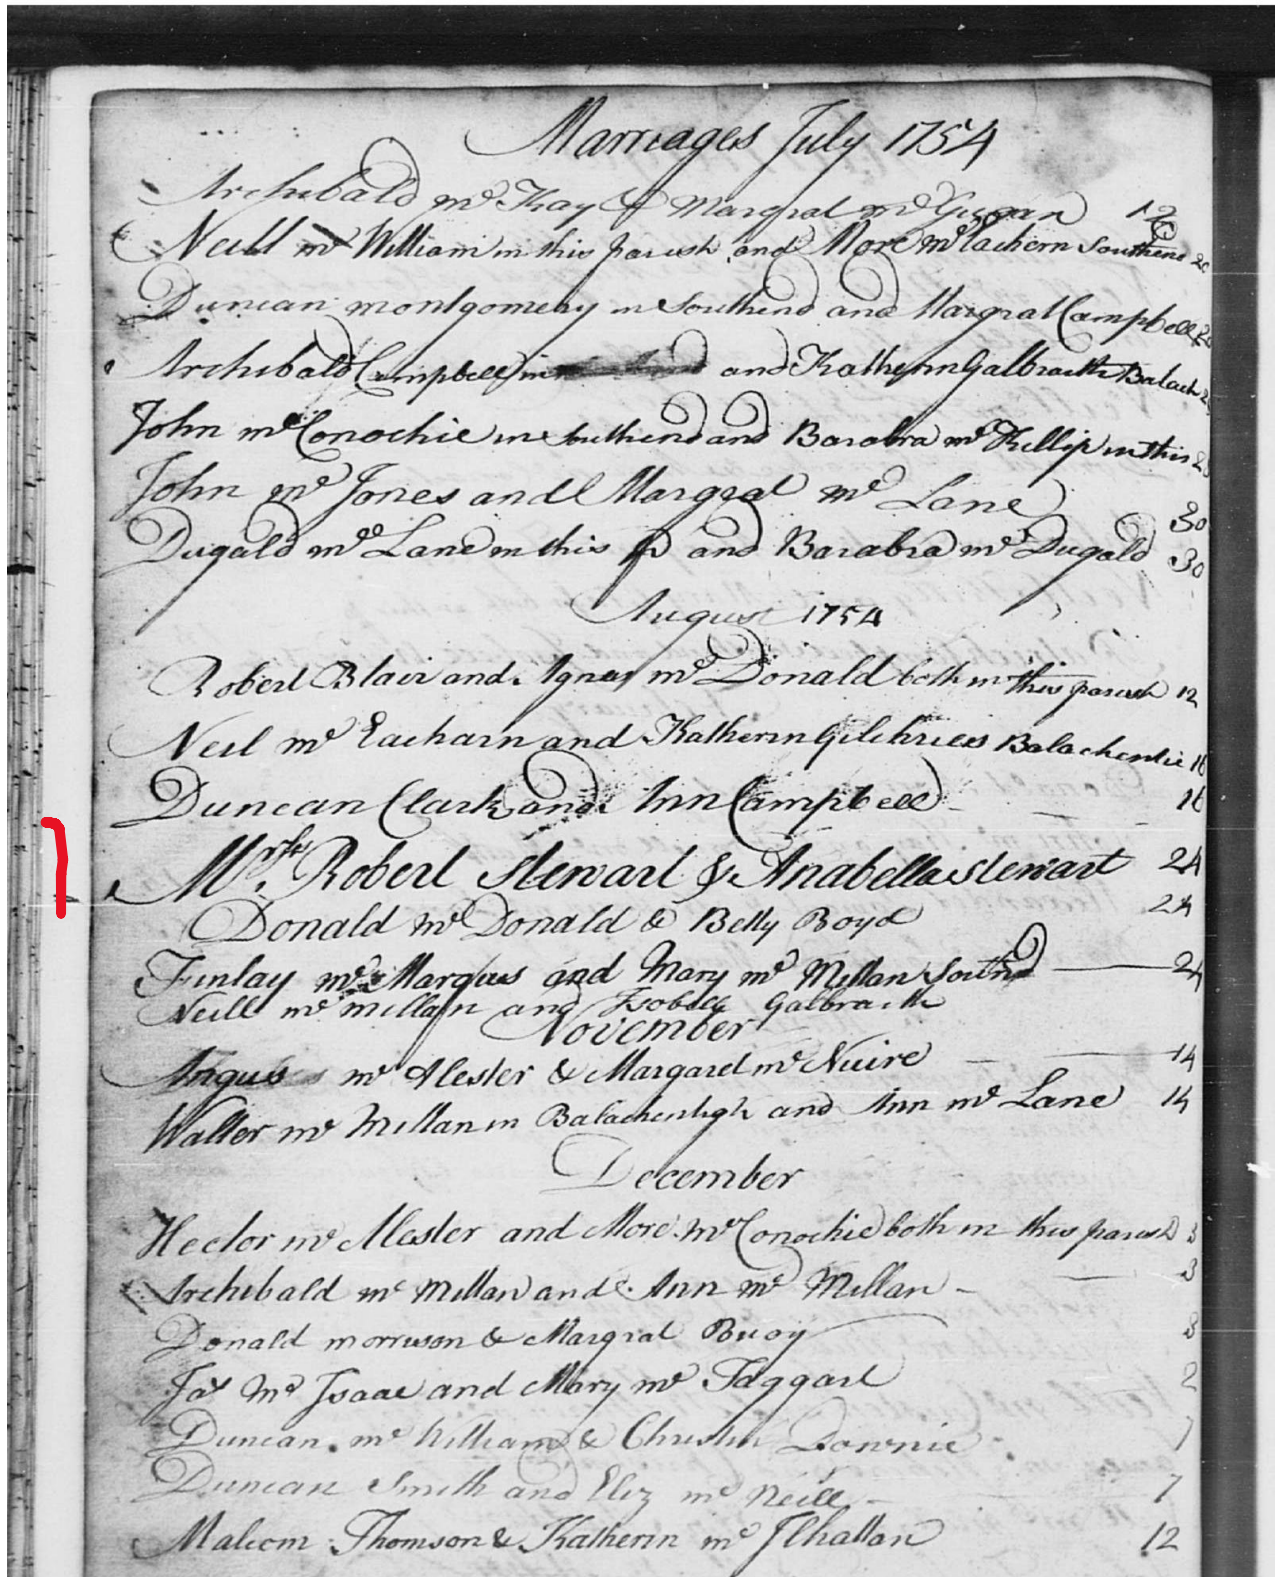 Marriages July 1754
Archibald mc Kay & Margrat mc Gugan 12
Neill mc William in this parish and More mc Eachern Southend 20
Duncan montgomery in Southend and Margrat Campbell
Archibald Campbell in and Katherin Galbraith Balach
John mc Conochie in Southend and Barabra mc Killip in this
John mc Jones and Margrat mc Lane 30
Dugald mc Lane in this p and Barabra mc Dugald 30
August 1754
Robert Blair and Agnas mc Donald both in this parish 12
Neil mc Eacharn and Katherin Gilchries Balachentie 16
Duncan Clark and Ann Campbell 16
Mr. Robert Stewart & Anabella Stewart 24
Donald mc Donald & Betty Boyd 24
Finlay mc Marqus and Mary mc Millan Southd 24
Neill mc millan and Isobell Galbraith
November
Angus mc Alester & Margaret mc Nuire 14
Walter mc Millan in Balachentigh and Ann mc Lane 14
December
Hector mc Alester and More mc Conochie both in this parish 3
Archibald mc Millan and Ann mc Millan 3
Donald morrison & Margrat Buoy 3
Jas Mc Isaac and Mary mc Taggart 2
Duncan mc William & Christin Downie 7
Duncan Smith and Eliz mc Neill 7
Malcom Thomson & Katherin mc Ilhattan 12